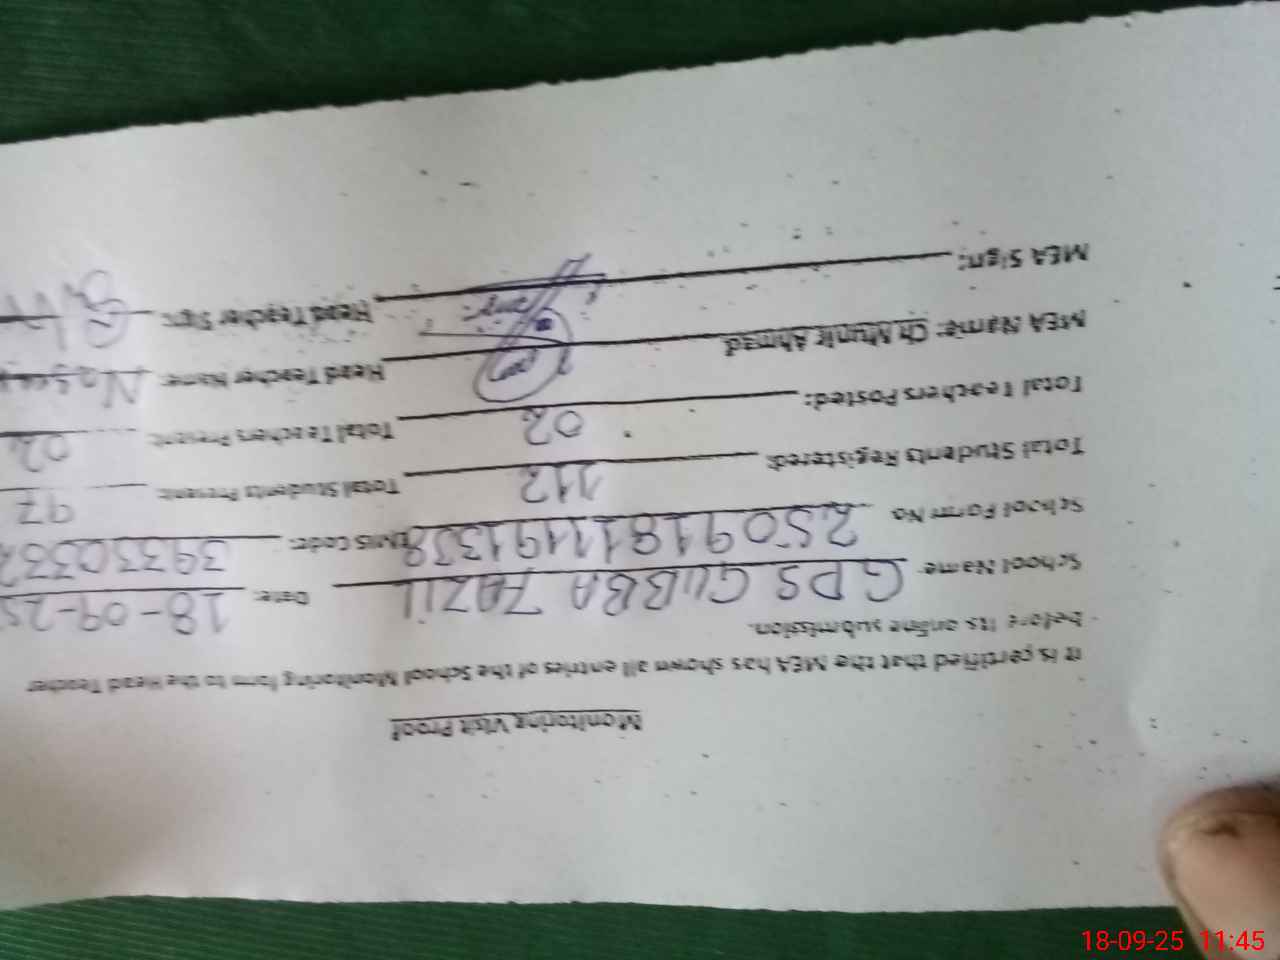 Monitoring Visit Proof
It is certified that the MEA has shown all entries of the School Monitoring form to the Head Teacher
before its online submission.
School Name GPS GUBBA FAZIL Date: 18-09-25
School Form No 25091811191338 EMIS Code: 39330337
Total Students Registered: 112 Total Students Present: 97
Total Teachers Posted: 02 Total Teachers Present: 02
MEA Name: Ch Munir Ahmad Head Teacher Name:
MEA Sign: Head Teacher Sign:
18-09-25 11:45